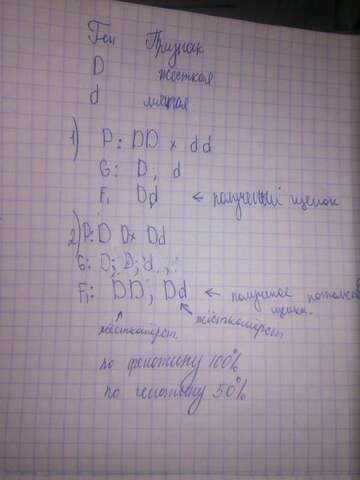 Ген Признак
D жесткая
d мягкая
1) P: DD x dd
G: D, d
F₁ Dd ← полученный щенок
2) P: D Dx Dd
G: D; D; d..,
F₁: DD; Dd ← полученое потомство щенки.
жесткошерст. жесткошерст
по фенотипу 100%
по генотипу 50%